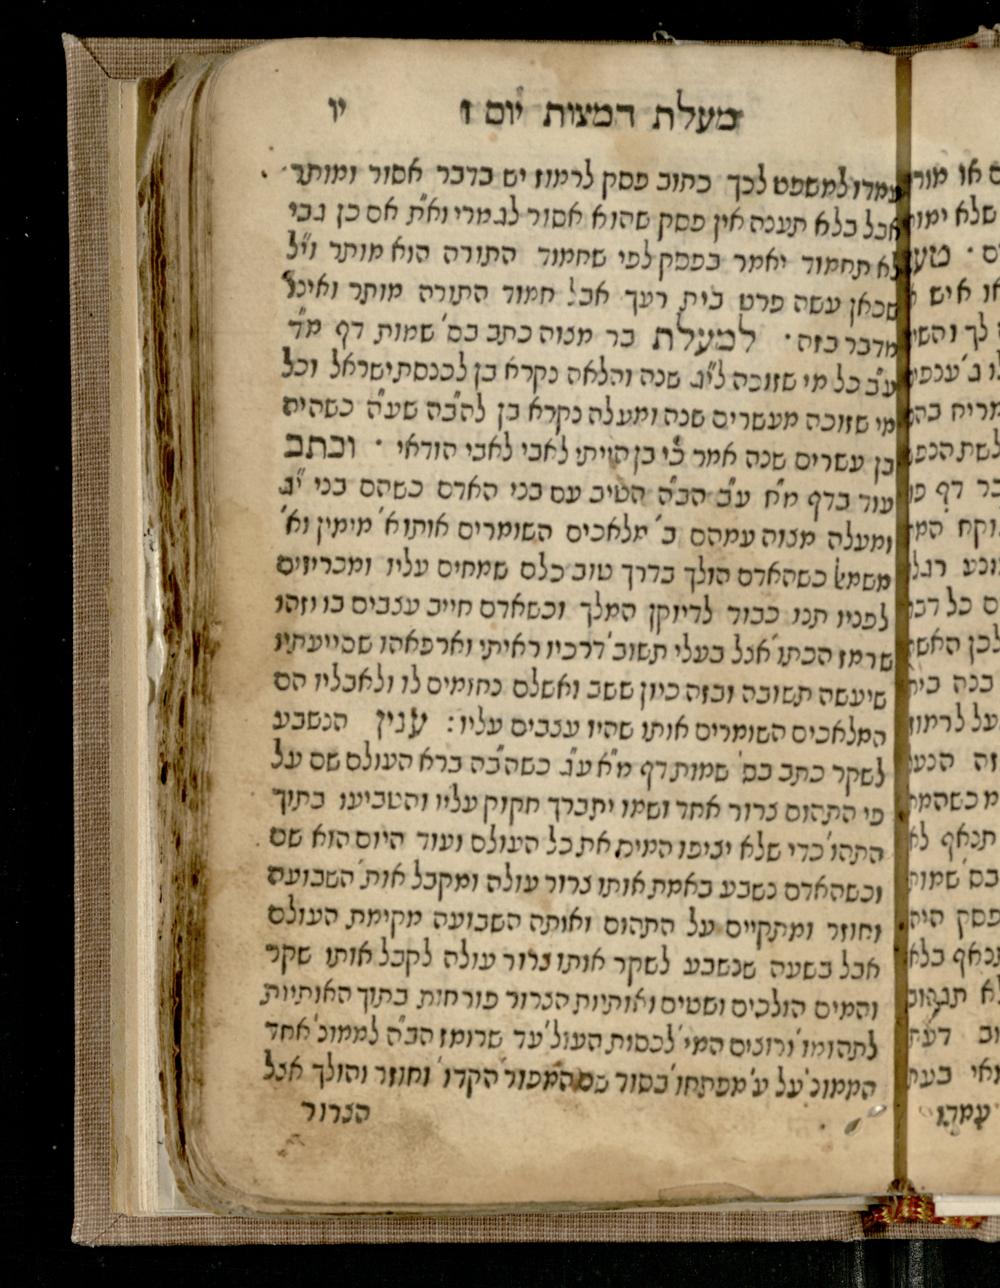 מעלת המצות יום ז יו
עמדו למשפט לכך כתוב פסק לרמוז יש בדבר אסור ומותר
אבל בלא תענה אין פסק שהוא אסור לגמרי וא"ת אם כן גבי
לא תחמוד יאמר בפסק לפי שחמוד התורה הוא מותר וי"ל
שכאן עשה פרט בית רעך אבל חמוד התורה מותר ואינו
מדבר בזה · למעלת בר מצוה כתב בס' שמות דף מ"ד
ע"ב כל מי שזוכה לי"ג שנה והלאה נקרא בן לכנסת ישראל וכל
מי שזוכה מעשרים שנה ומעלה נקרא בן להב"ה שע"ה כשהיה
בן עשרים שנה אמר כי בן הייתי לאבי לאבי הודאי · וכתב
עוד בדף מ"ח ע"ב הב"ה הטיב עם בני האדם כשהם בני י"ג
ומעלה מצוה עמהם ב' מלאכים השומרים אותו א' מימין וא'
משמא' כשהאדם הולך בדרך טוב כלם שמחים עליו ומכריזים
לפניו תנו כבוד לדיוקן המלך וכשאדם חייב עצבים בו וזהו
שרמז הכתו' אצל בעלי תשוב' דרכיו ראיתי וארפאהו שסייעתיו
שיעשה תשובה ובזה כיון ששב ואשלם נחומים לו ולאבליו הם
המלאכים השומרים אותו שהיו עצבים עליו: ענין הנשבע
לשקר כתב בס' שמות דף מ"א ע"ג כשהב"ה ברא העולם שם על
פי התהום צרור אחד ושמו יתברך חקוק עליו והטביעו בתוך
התהו' כדי שלא יציפו המים את כל העולם ועוד היום הוא שם
וכשהאדם נשבע באמת אותו צרור עולה ומקבל אות' השבועה
וחוזר ומתקיים על התהום ואותה השבועה מקימת העולם
אבל בשעה שנשבע לשקר אותו צרור עולה לקבל אותו שקר
והמים הולכים ושטים ואותיות הצרור פורחות בתוך האותיות
לתהומו' ורוצים המי' לכסות העול' עד שרומז הב"ה לממונ' אחד
הממונ' על ע' מפתחו' בסוד שם המפור' הקדו' וחוזר והולך אצל
הצרור